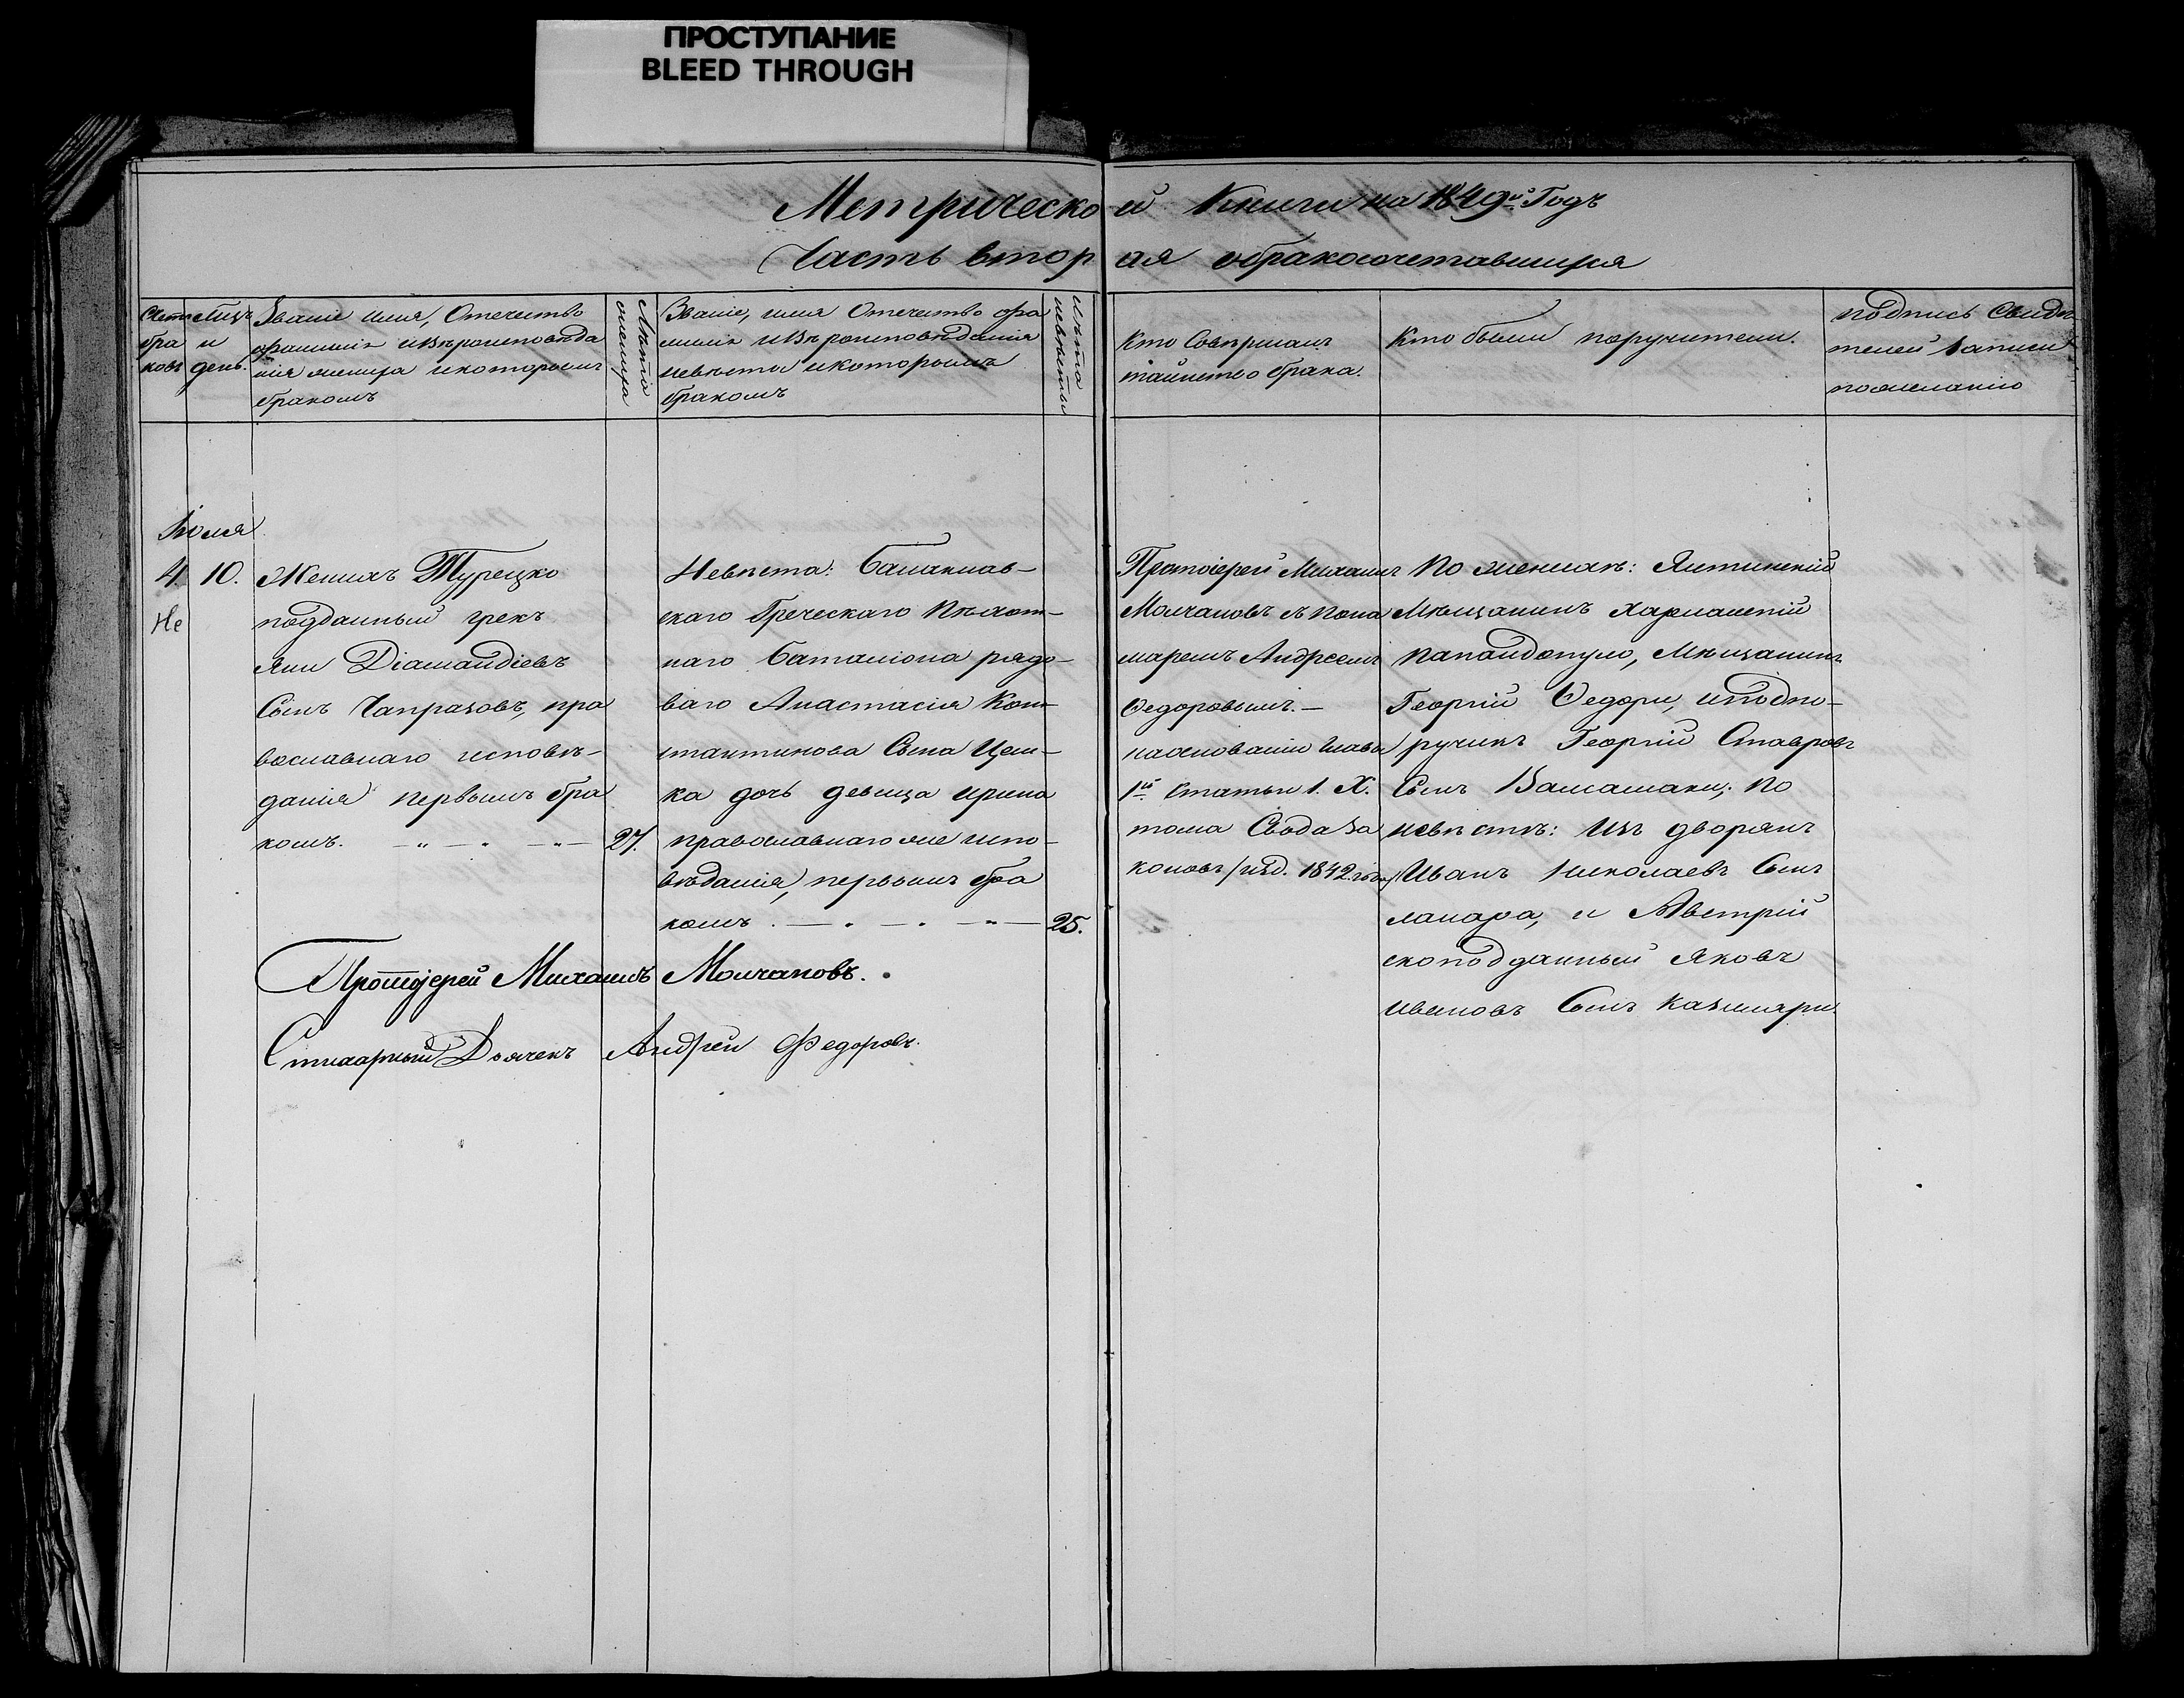 ПРОСТУПАНИЕ
BLEED THROUGH
Метрической Книги на 1849й Годъ
Часть вторая обракосочетавшихся
Счетъ
бра
ковъ
Мцъ
и
день.
Званіе имя, Отечество
фамилія ивѣроисповѣда
нія жениха икоторымъ
бракомъ
Лѣто
жениха
Званіе, имя Отечество фа
милія ивѣроисповѣданія
невѣсты икоторымъ
бракомъ
Лѣта
невѣсты
Кто Совершалъ
таинство брака.
Кто были поручители.
подпись Свидѣ
телей записи
пожеланію
Іюля
4. 10.
Не
Женихъ Турецко
подданный грекъ
Яни Діамандіевъ
Сынъ Чапразовъ, пра
вославнаго исповѣ-
данія первымъ бра
комъ. 27.
Невѣста: Балаклав-
скаго Греческаго Пѣхот-
наго Баталіона рядо-
ваго Анастасія Кон-
стантинова Сына Цем-
ка дочь девица Ирина
православнаго же испо-
вѣданія, первымъ бра
комъ. 25.
Протоіерей Михаилъ
Молчановъ съ Поно
маремъ Андреемъ
Ѳедоровымъ.-
наоснованіи Главы
1й Статьи 1. X.
тома Свода За
коновъ/изд. 1842. года/
По женихѣ: Ялтинскій
Мѣщанинъ Харлампій
Папандопуло, Мѣщанинъ
Георгій Ѳедори, иподпо-
ручикъ Георгій Ставровъ
Сынъ Валсамаки; По
невѣстѣ: Изъ дворянъ
Иванъ Николаевъ Сынъ
и Австрій
скоподданный Яковъ
Ивановъ Сынъ
Протоіерей Михаилъ Молчановъ.
Стихарный Дьячекъ Андрей Федоровъ.